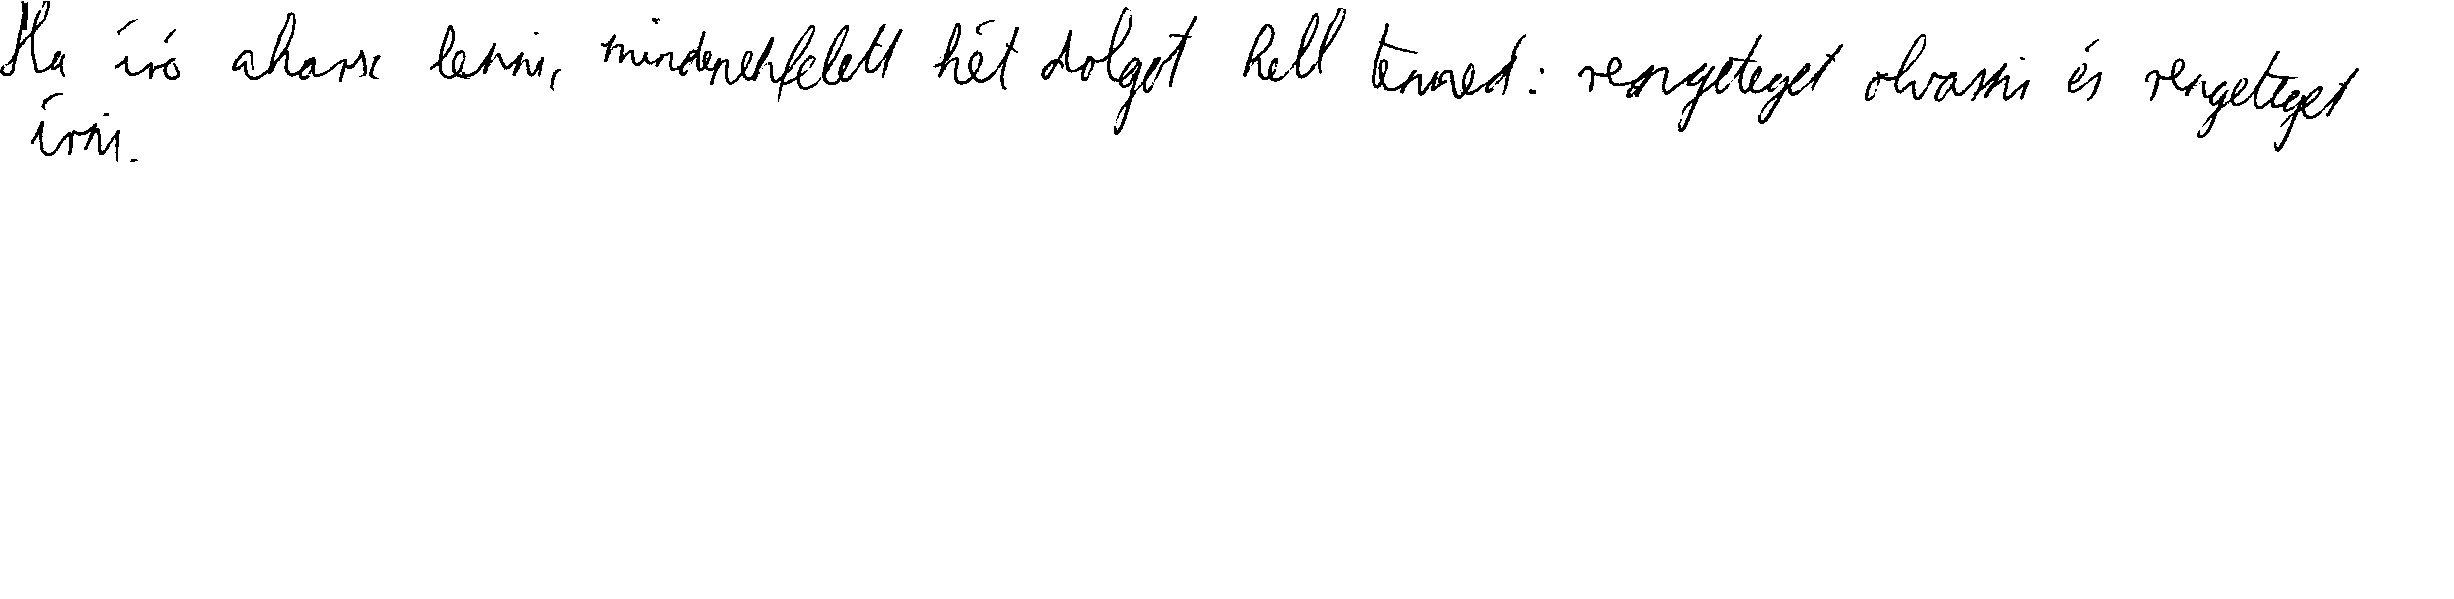 Ha író akarsz lenni, mindenekfelett hét dolgot kell tenned: rengeteget olvasni és rengeteget
írni.